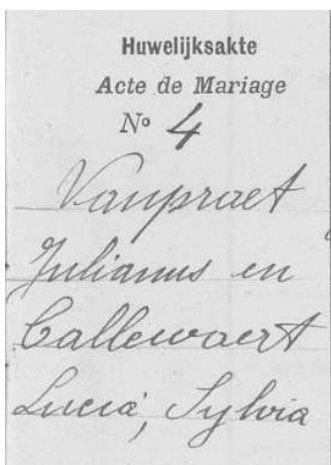 Huwelijksakte
Acte de Mariage
No 4
Vanpraet
Julianus en
Callewaert
Lucia, Sylvia